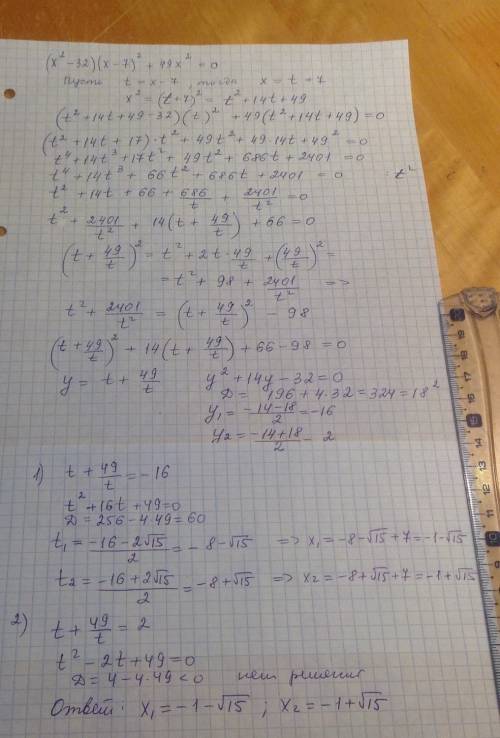 (x² - 32)(x - 7)² + 49x² = 0
Пусть t = x - 7, тогда x = t + 7
x² = (t + 7)² = t² + 14t + 49
(t² + 14t + 49 - 32)(t)² + 49(t² + 14t + 49) = 0
(t² + 14t + 17) · t² + 49t² + 49·14t + 49² = 0
t⁴ + 14t³ + 17t² + 49t² + 686t + 2401 = 0
t⁴ + 14t³ + 66t² + 686t + 2401 = 0 : t²
t² + 14t + 66 + 686/t + 2401/t² = 0
t² + 2401/t² + 14(t + 49/t) + 66 = 0
(t + 49/t)² = t² + 2t · 49/t + (49/t)² =
= t² + 98 + 2401/t² =>
t² + 2401/t² = (t + 49/t)² - 98
(t + 49/t)² + 14(t + 49/t) + 66 - 98 = 0
y = t + 49/t y² + 14y - 32 = 0
D = 196 + 4·32 = 324 = 18²
y₁ = (-14-18)/2 = -16
y₂ = (-14+18)/2 = 2
1) t + 49/t = -16
t² + 16t + 49 = 0
D = 256 - 4·49 = 60
t₁ = (-16 - 2√15)/2 = -8 - √15 => x₁ = -8 - √15 + 7 = -1 - √15
t₂ = (-16 + 2√15)/2 = -8 + √15 => x₂ = -8 + √15 + 7 = -1 + √15
2) t + 49/t = 2
t² - 2t + 49 = 0
D = 4 - 4·49 < 0 нет решения
Ответ: x₁ = -1 - √15 ; x₂ = -1 + √15